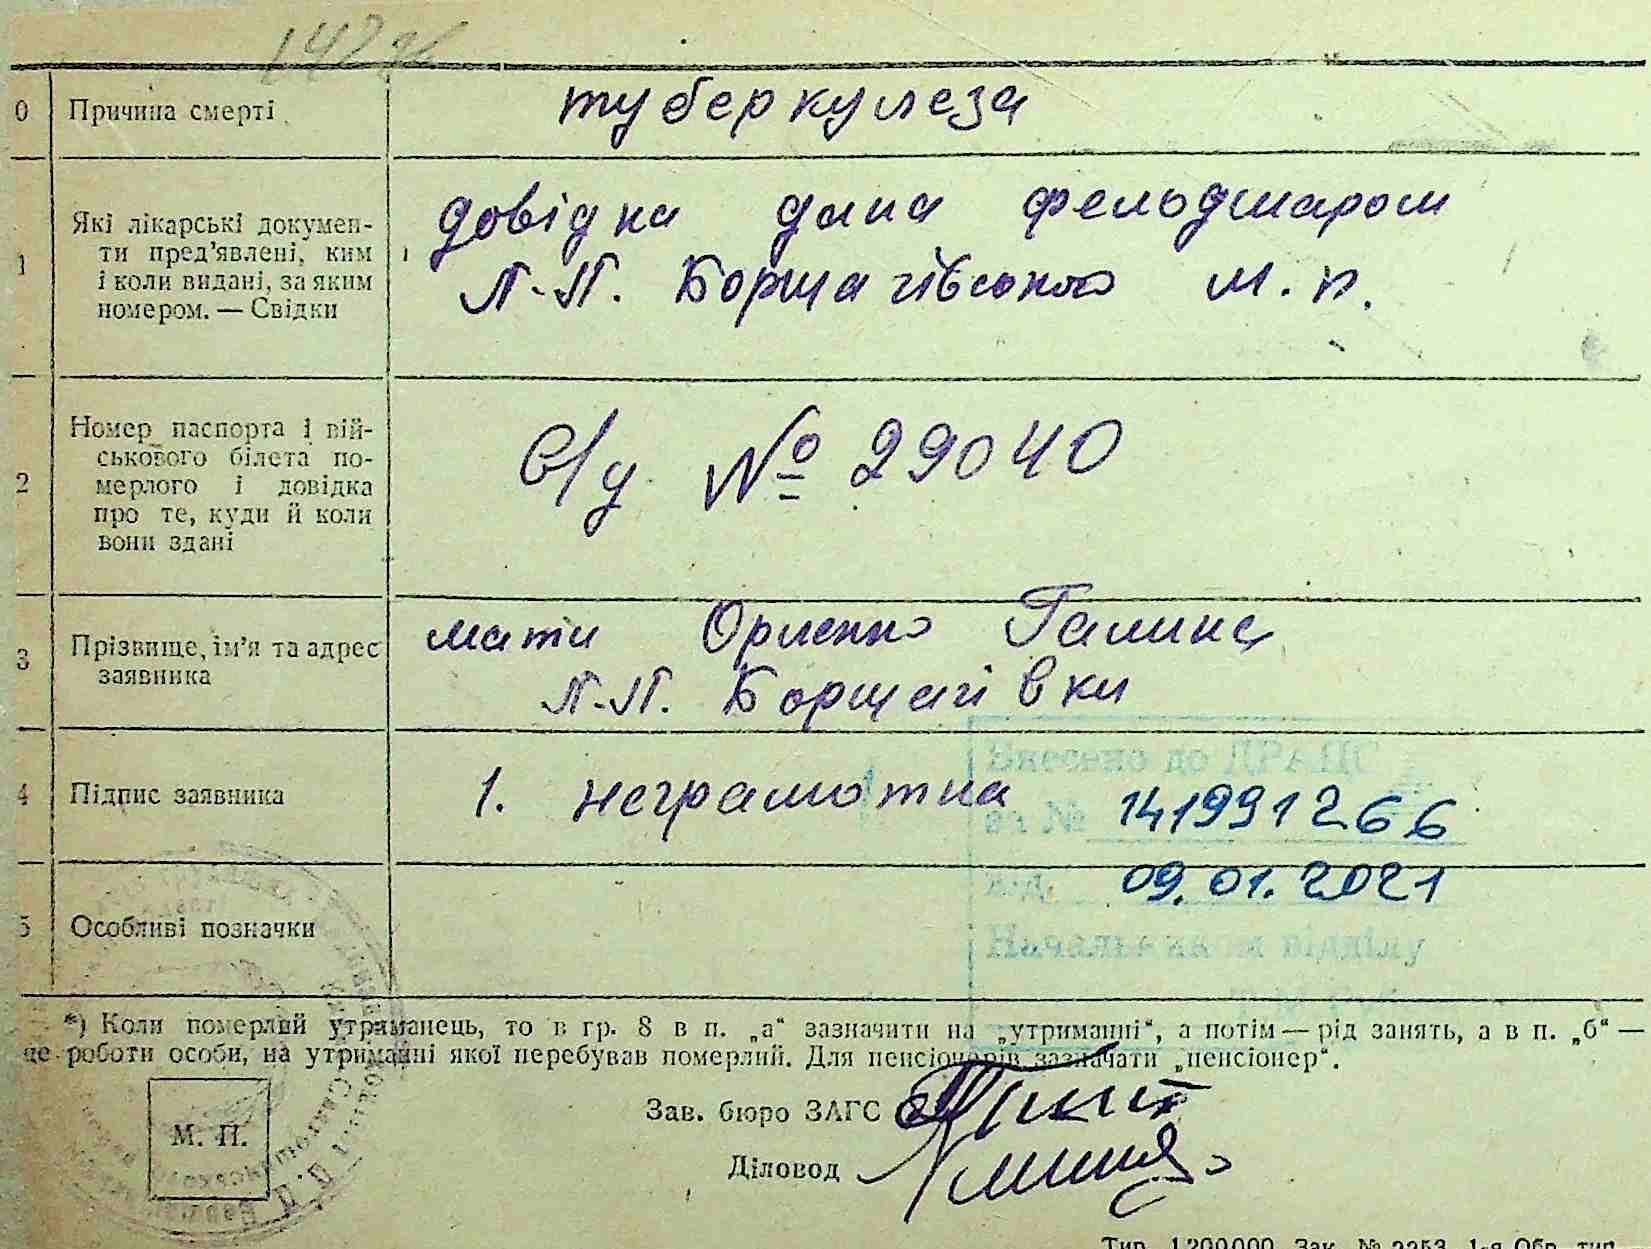 0 Причина смерті туберкулеза
1 Які лікарські докумен-
ти пред'явлені, ким
і коли видані, за яким
номером. — Свідки
довідка дана фельдшаром
П.-П. Борщагівського м. п.
2 Номер паспорта і вій-
ськового білета по-
мерлого і довідка
про те, куди й коли
вони здані
в/у № 29040
3 Прізвище, ім'я та адрес
заявника
мати Орленко Галина
П.-П. Борщагівки
4 Підпис заявника 1. неграмотна
Внесено до ДРАЦС
№ 141991266
09.01.2021
Начальник відділу
5 Особливі позначки
*) Коли померлий утриманець, то в гр. 8 в п. „а“ зазначити на „утриманні“, а потім — рід занять, а в п. „б“ —
це роботи особи, на утриманні якої перебував померлий. Для пенсіонерів зазначати „пенсіонер“.
Зав. бюро ЗАГС
М. П.
Діловод
Тир. 1.200.000 Зак. № 2253 1-я Обр. тип.